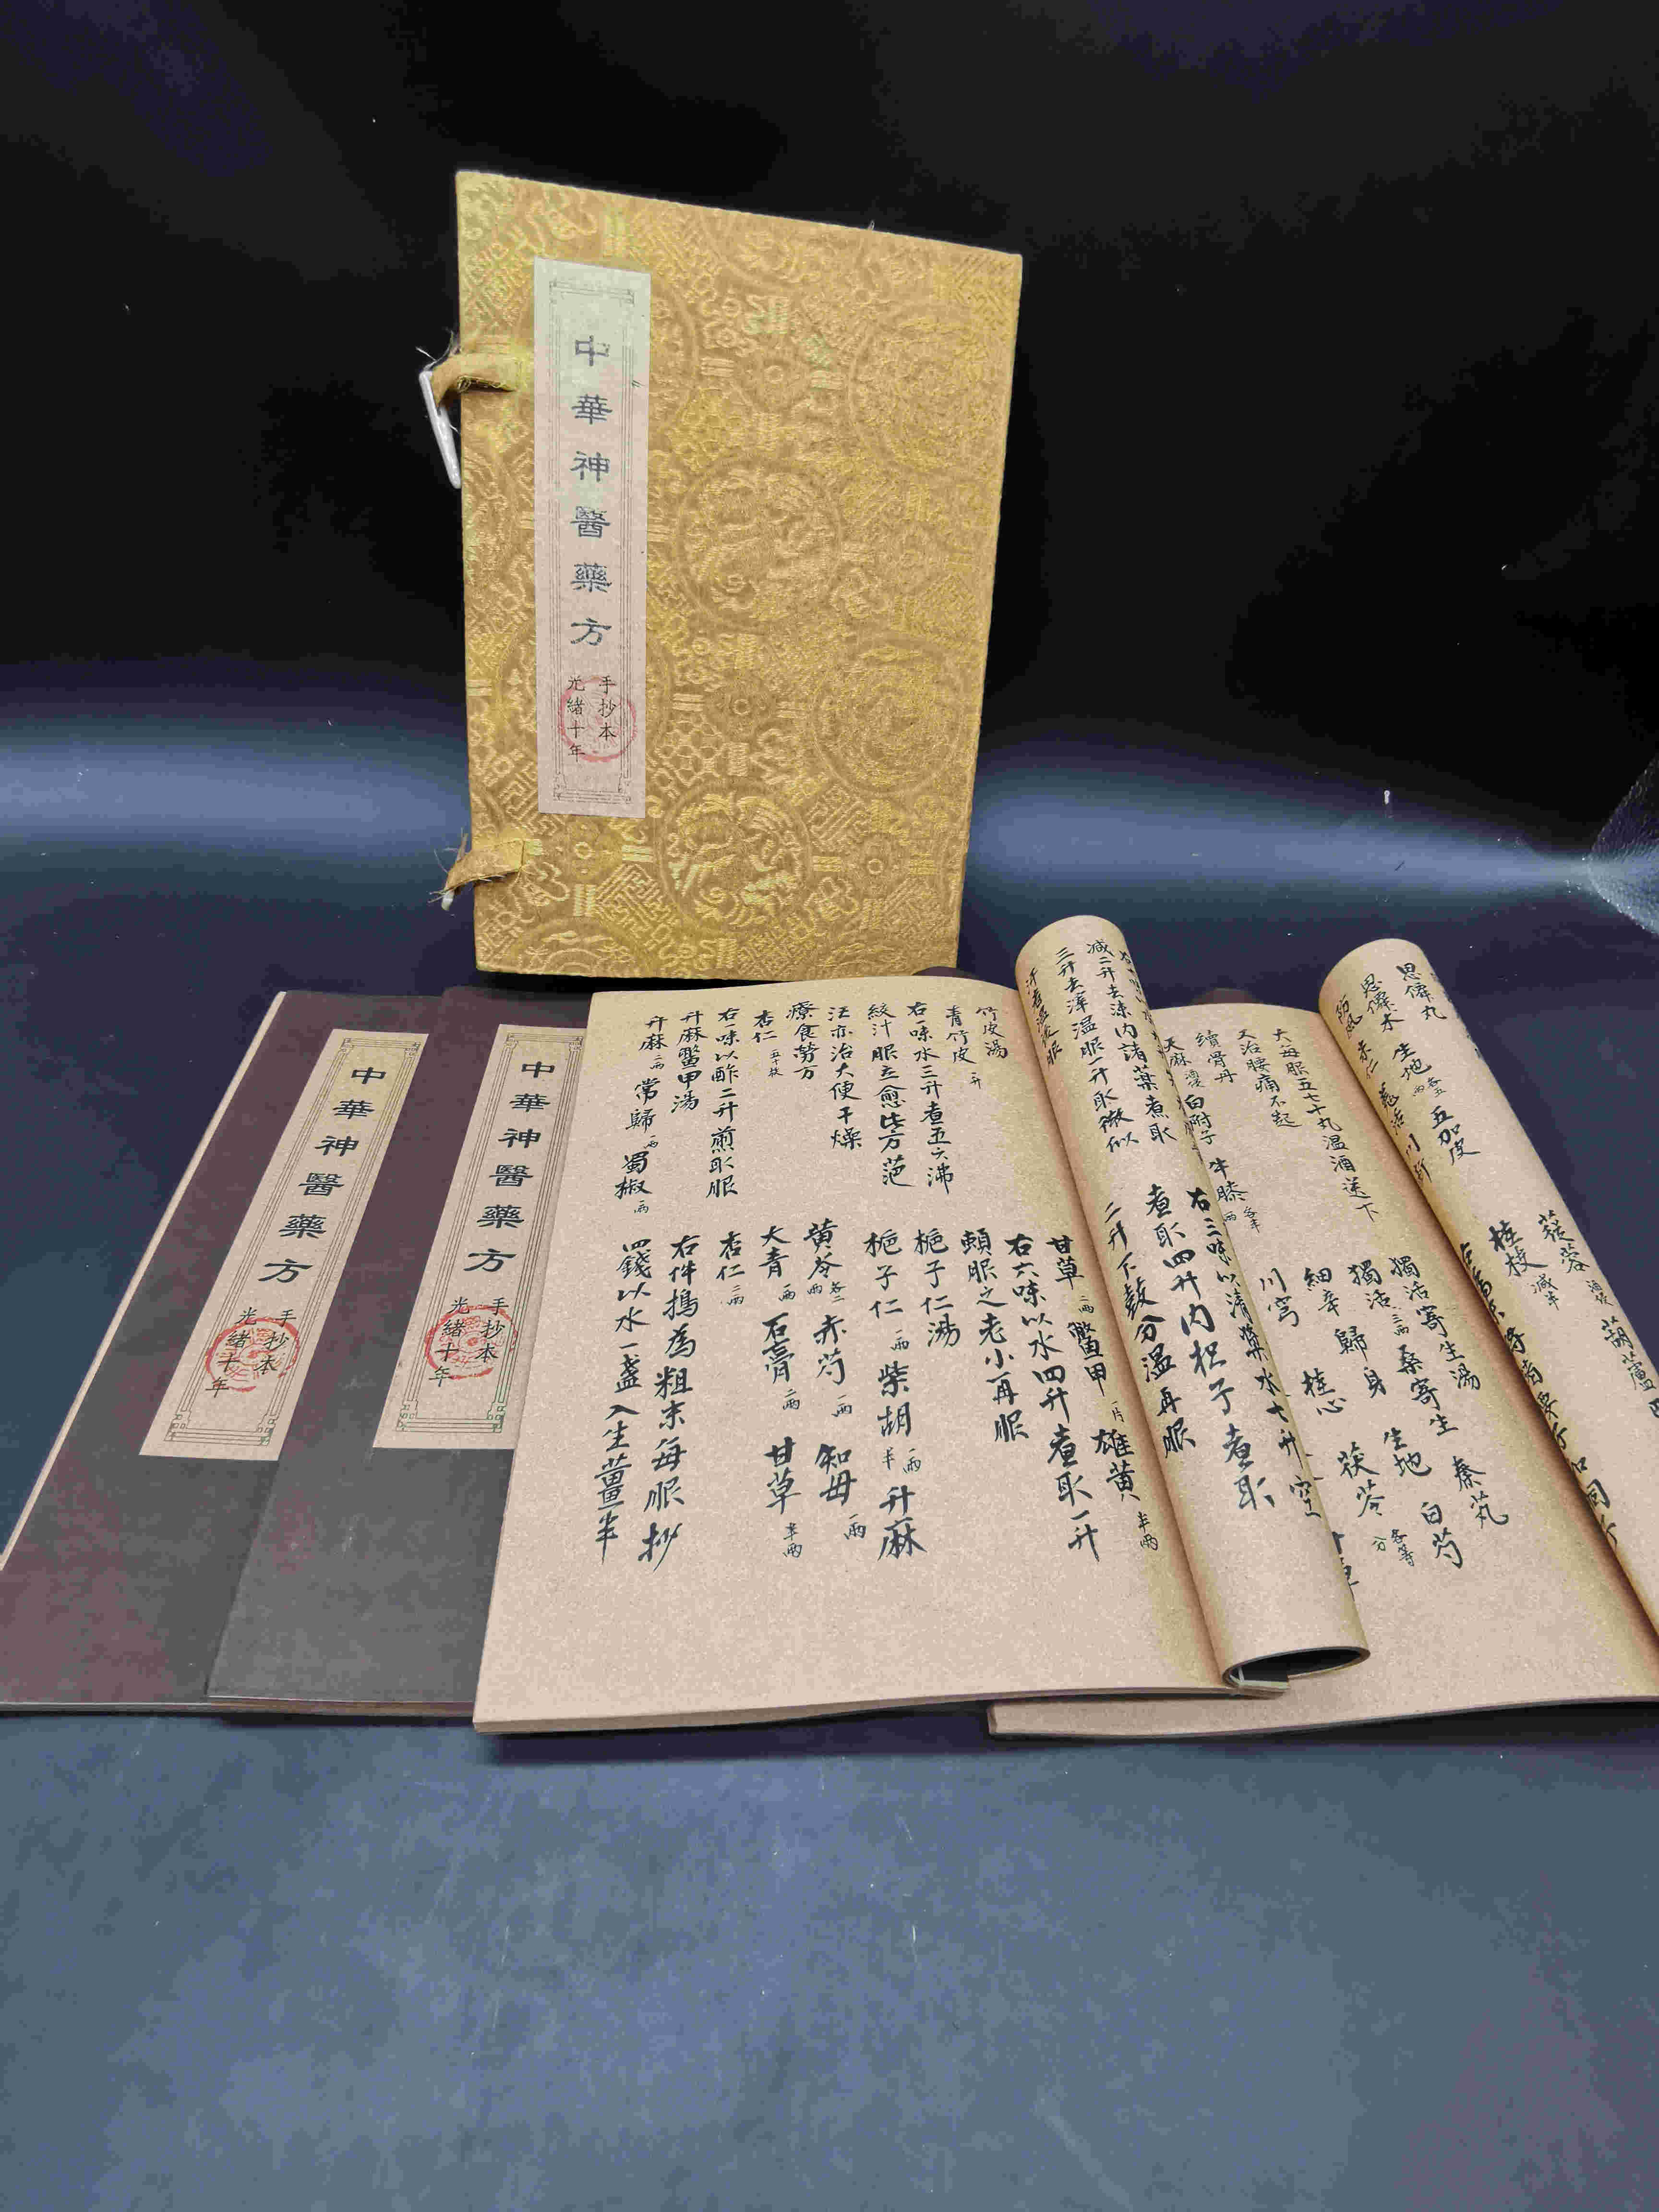 中華神醫藥方
手抄本
光緒十年
中華神醫藥方
手抄本
光緒十年
中華神醫藥方
手抄本
光緒十年
減二升去沫内諸藥煮取
三升去滓温服一升取微似
汗者温覆服
右三味以清漿水七升空
煮取四升内枳子煮取
二升下鼓分温再服
竹皮湯
青竹皮 一升
右一味水三升煮五六沸
絞汁服立愈此方
亦治大便干燥
療食勞方
杏仁 五十枚
右一味以酢二升煎取服
升麻鱉甲湯
升麻 二兩 當歸 一兩 蜀椒 一兩
甘草 二兩 鱉甲 一片 雄黄 半兩
右六味以水四升煮取一升
頓服之老小再服
梔子仁湯
梔子仁 一兩 柴胡 一兩半 升麻
黄芩 各二兩 赤芍 一兩 知母 一兩
大青 一兩 石膏 二兩 甘草 半兩
杏仁 二兩
右件搗為粗末每服抄
四錢以水一盞入生薑一半
大每服五七十丸温酒送下
又治腰痛不起
續骨丹
天麻 酒浸 白附子 牛膝 各半兩
獨活寄生湯
獨活 三兩 桑寄生 秦芃
細辛 歸身 生地 白芍
川芎 桂心 茯苓 各等分
思仙丸
思仙木 生地 各五兩 五加皮
防風 羌活
蓯蓉 酒浸 葫蘆
桂枝 減半